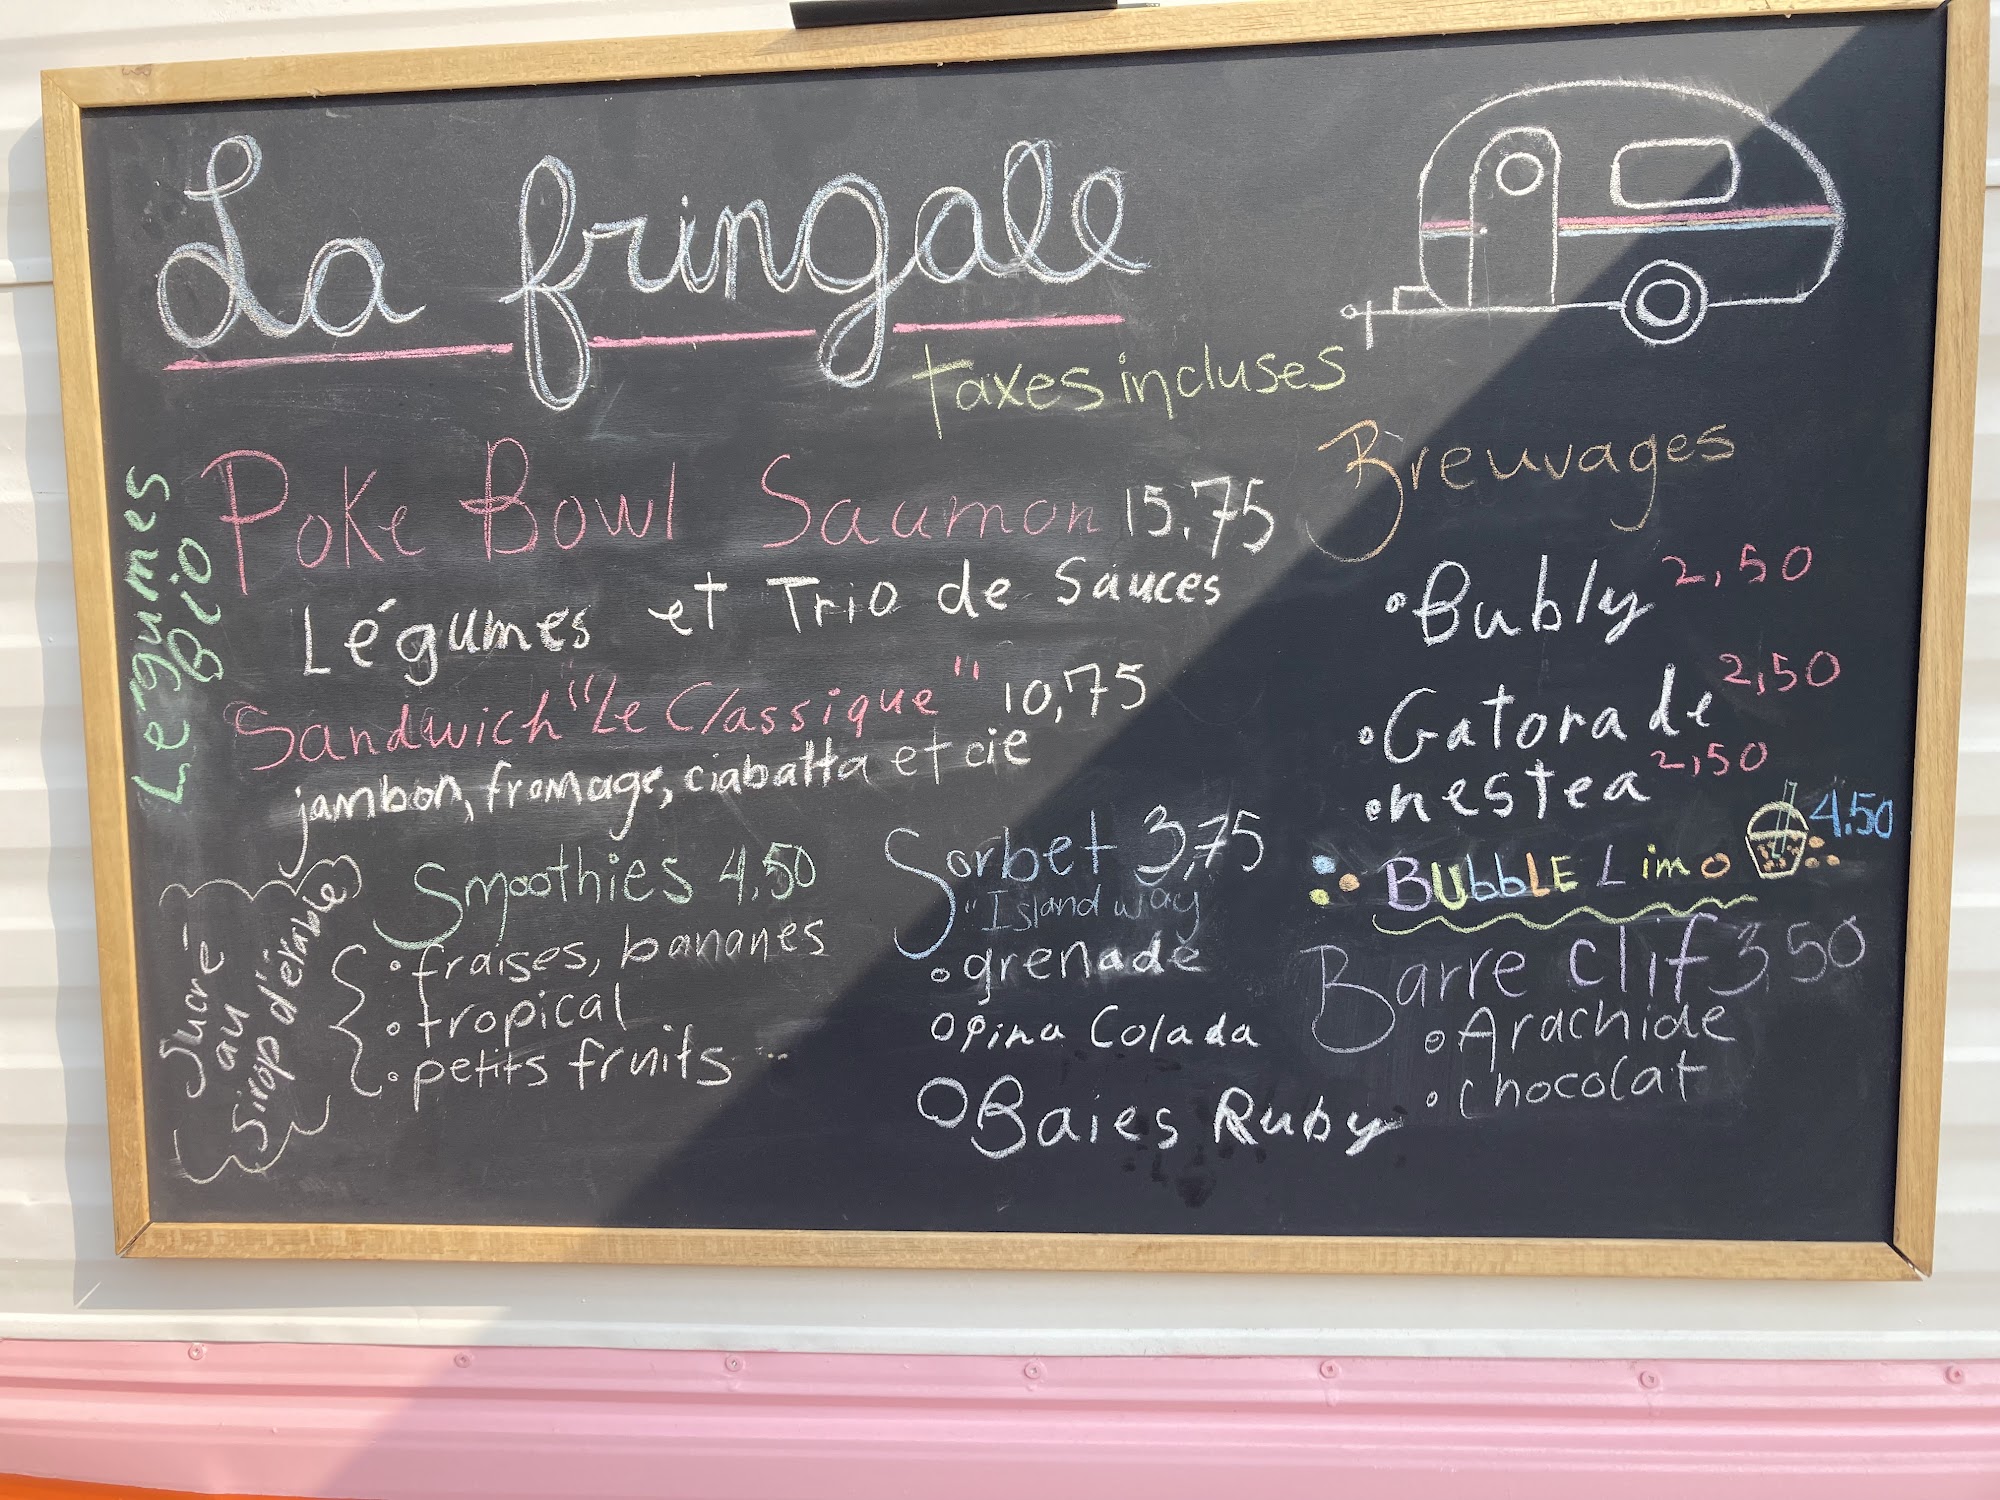 La fringale
taxes incluses
Légumes
Bio
Poke Bowl Saumon 15.75
Légumes et Trio de Sauces
Sandwich "Le Classique" 10,75
jambon, fromage, ciabatta et cie
Sucré
au
sirop d'érable
Smoothies 4,50
• fraises, bananes
• tropical
• petits fruits
Sorbet 3,75
"Island way
• grenade
• Pina Colada
• Baies Ruby
Breuvages
• Bubly 2,50
• Gatorade 2,50
• nestea 2,50
BUbbLE Limo 4.50
Barre clif 3,50
• Arachide
• chocolat